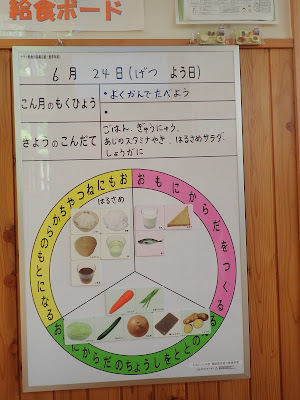 給食ボード
6月 24日(げつ よう日)
こん月のもくひょう
・よくかんでたべよう
・
きょうのこんだて
ごはん、ぎゅうにゅう、
あじのスタミナやき、はるさめサラダ、
しょうがに
おもにねつやちからのもとになる
おもにからだをつくる
はるさめ
おもにからだのちょうしをととのえる